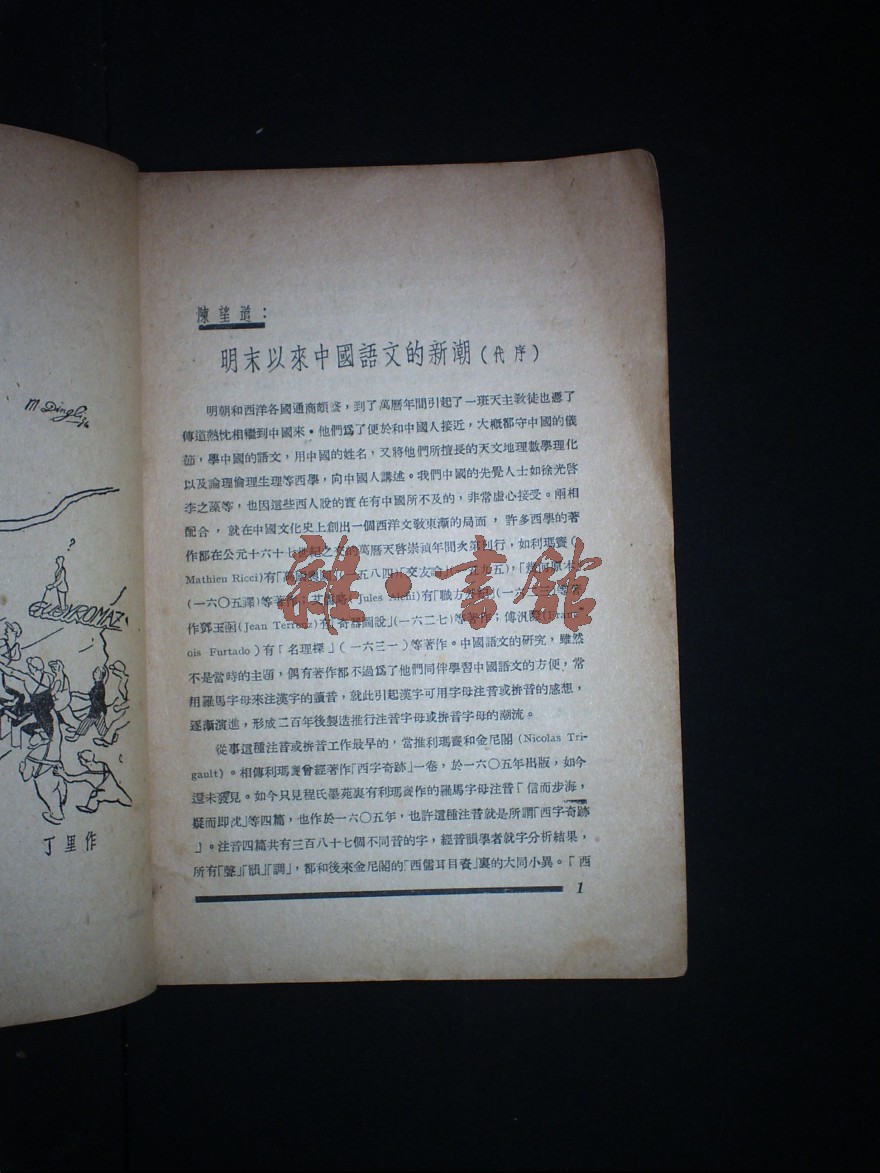 M Dingli
丁里作
陳望道：
明末以來中國語文的新潮（代序）
明朝和西洋各國通商頗盛，到了萬曆年間引起了一班天主教徒也憑了
傳道熱忱相繼到中國來。他們爲了便於和中國人接近，大概都守中國的儀
節，學中國的語文，用中國的姓名，又將他們所擅長的天文地理數學理化
以及論理倫理生理等西學，向中國人講述。我們中國的先覺人士如徐光啓
李之藻等，也因這些西人說的實在有中國所不及的，非常虛心接受。兩相
配合，就在中國文化史上創出一個西洋文敎東漸的局面，許多西學的著
作都在公元十六十七世紀之交的萬曆天啓崇禎年間次第刊行，如利瑪竇（
Mathieu Ricci)有「 （一五八四）「交友論」（一五九五），「幾何原本」
(一六〇五譯)等著作；艾 (Jules Aleni)有「職方外紀」(一六二三)等著
作鄧玉函(Jean Terrenz)有「奇器圖說」(一六二七)等著作；傅汎際(Franç-
ois Furtado)有「名理探」(一六三一)等著作。中國語文的研究，雖然
不是當時的主題，偶有著作都不過爲了他們同伴學習中國語文的方便，常
用羅馬字母來注漢字的讀音，就此引起漢字可用字母注音或拚音的感想，
逐漸演進，形成二百年後製造推行注音字母或拚音字母的潮流。
從事這種注音或拚音工作最早的，當推利瑪竇和金尼閣(Nicolas Tri-
gault)。相傳利瑪竇曾經著作「西字奇跡」一卷，於一六〇五年出版，如今
還未發見。如今只見程氏墨苑裏有利瑪竇作的羅馬字母注音「信而步海，
疑而即沈」等四篇，也作於一六〇五年，也許這種注音就是所謂「西字奇跡
」。注音四篇共有三百八十七個不同音的字，經音韻學者就字分析結果，
所有「聲」「韻」「調」，都和後來金尼閣的「西儒耳目資」裏的大同小異。「西
1
雜·書館